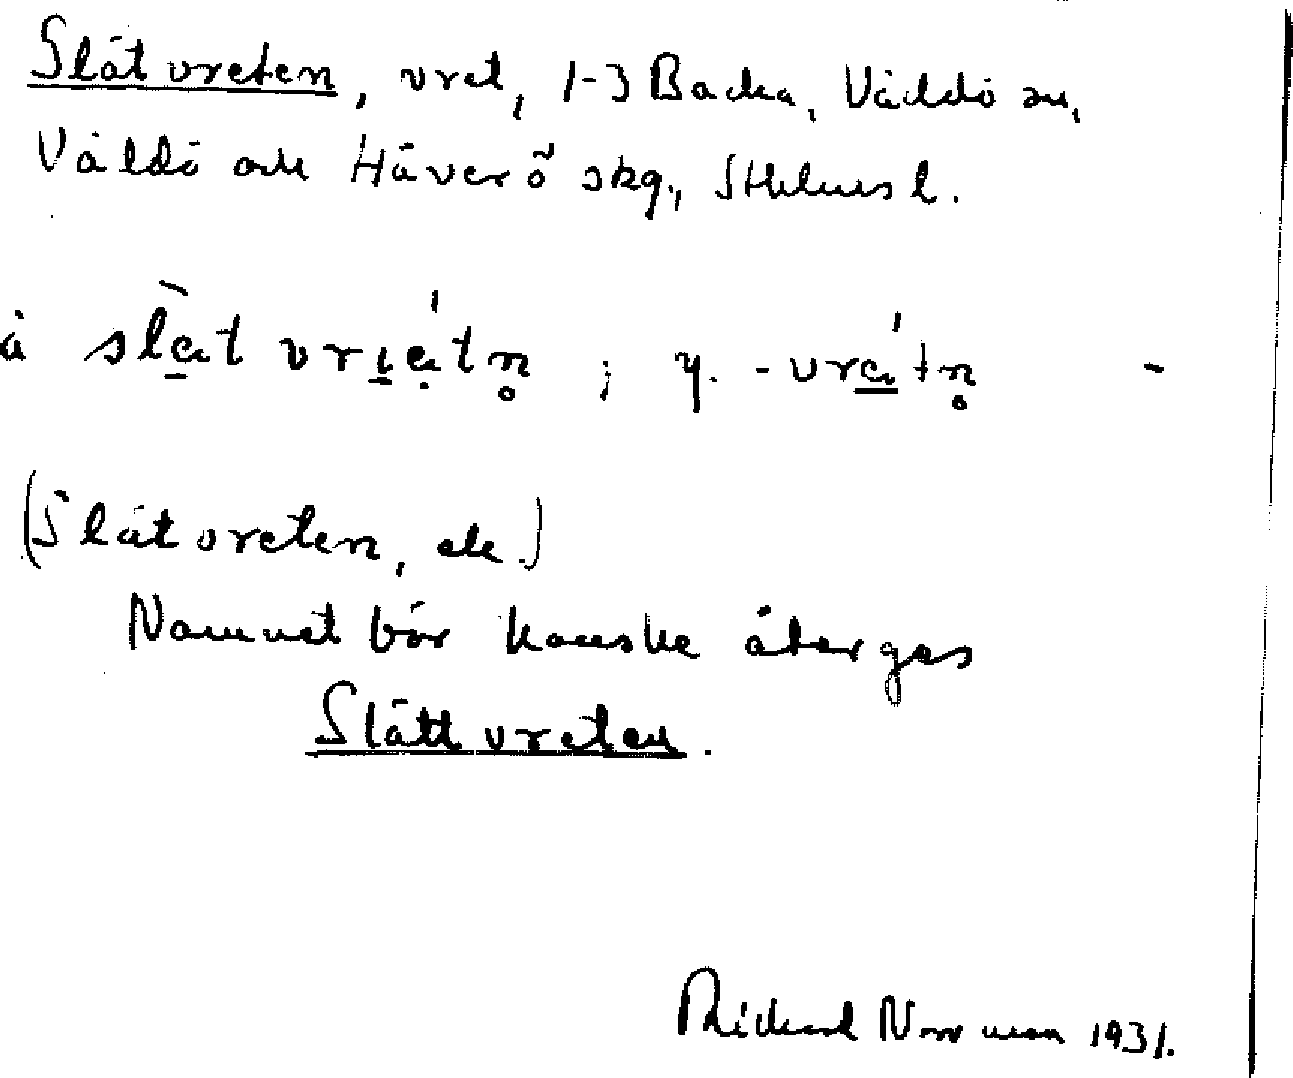 Slåtvreten, vret, 1-3 Backa, Väddö sn,
Väddö och Häverö skg., Sthlms l.
(Slåtvreten, etc.)
Namnet bör kanske återges
Slättvreten.
Richard Norrman 1931.